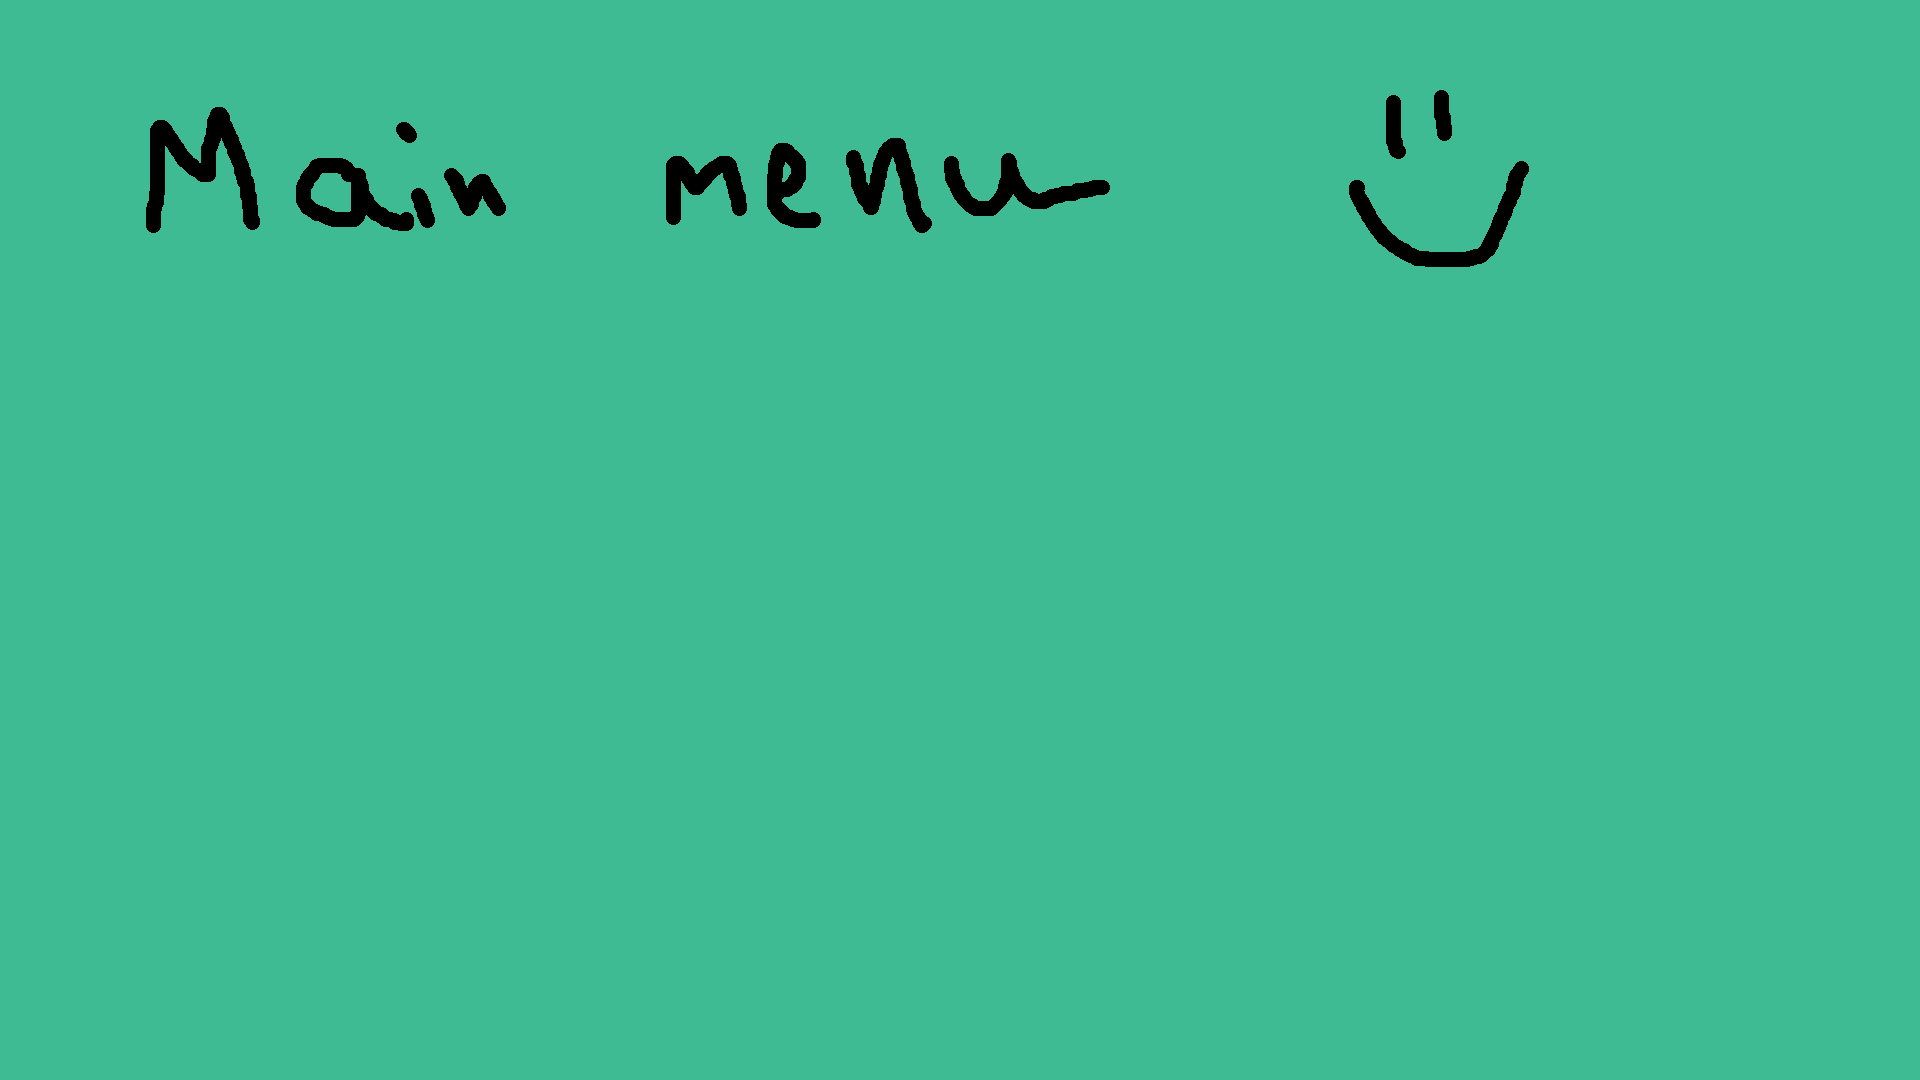 Main menu